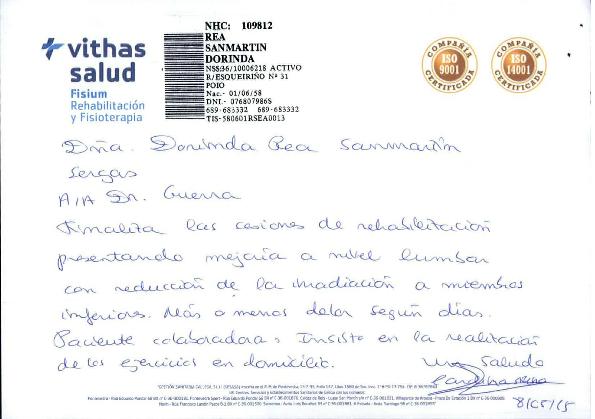 vithas
salud
Fisium
Rehabilitación
y Fisioterapia
NHC: 109812
REA
SANMARTIN
DORINDA
NSS:36/10006218 ACTIVO
R/ESQUEIRIÑO Nº 31
POIO
Nac.- 01/06/58
DNI.- 076807986S
689-683332 689-683332
TIS-580601RSEA0013
COMPAÑÍA
ISO
9001
CERTIFICADA
COMPAÑÍA
ISO
14001
CERTIFICADA
Dña. Dorinda Rea Sanmartín
Sergas
A/A Dr. Guerra
Finaliza las cesiones de rehabilitación
presentando mejoría a nivel lumbar
con reducción de la irradiación a miembros
inferiores. Más o menos dolor según días.
Paciente colaboradora. Insisto en la realización
de los ejercicios en domicilio.
Un Saludo